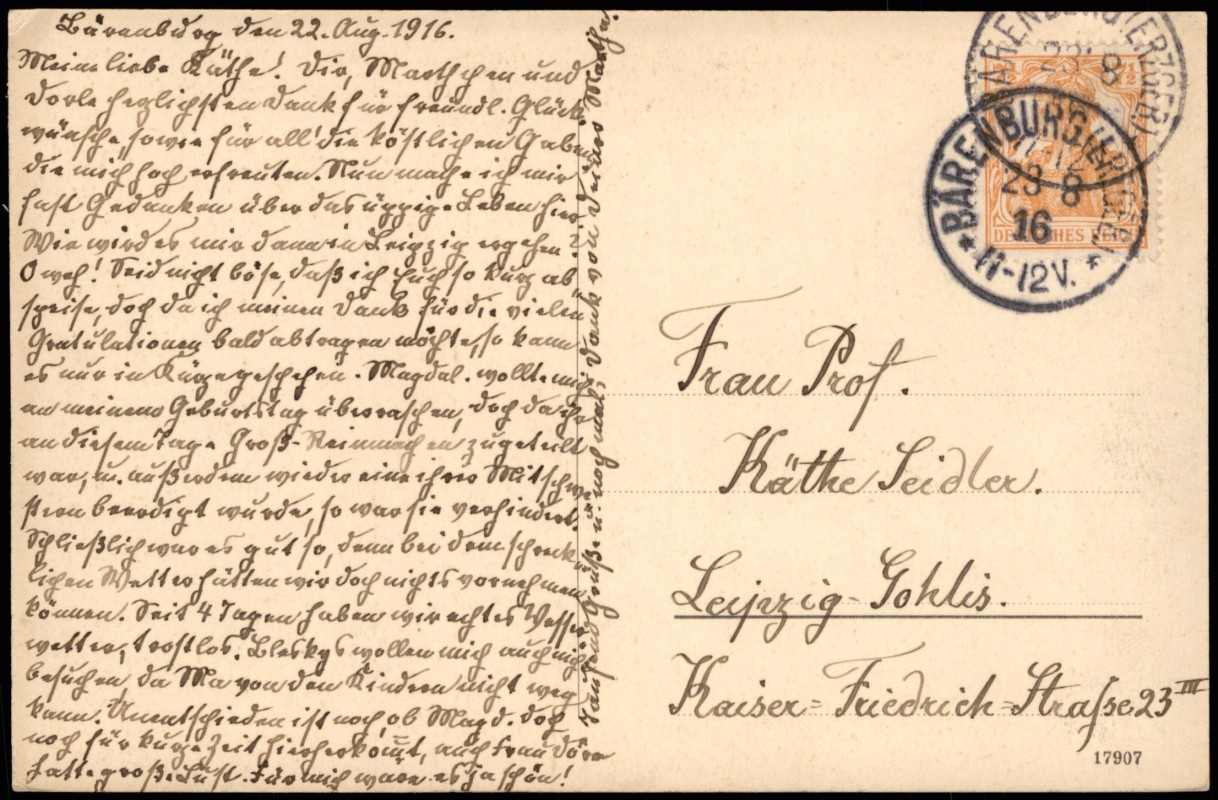 Bärenburg den 22. Aug. 1916.
Meine liebe Käthe! Dir, Marthchen und
Dorle herzlichsten Dank für freundl. Glück-
wünsche, sowie für all' die köstlichen Gaben
die mich hoch erfreuten. Nun mache ich mir
fast Gedanken über das üppige Leben hier
Wie wird es mir dann in Leipzig ergehen?
O weh! Seid nicht böse, daß ich Euch so kurz ab
speise, doch da ich meinen Dank für die vielen
Gratulationen bald abtragen möchte, so kann
es nur in Kürze geschehen. Magdal. wollte mich
an meinem Geburtstag überraschen, doch da ihr
an diesem Tage Groß-Reinmachen zugeteilt
war, u. außerdem wieder eine ihrer Mitschwe
stern beerdigt wurde, so war sie verhindert.
Schließlich war es gut so, denn bei dem schreck
lichen Wetter hätten wir doch nichts vornehmen
können. Seit 4 Tagen haben wir echtes
wetter, trostlos. Bleskys wollen mich auch nicht
besuchen, da Ma von den Kindern nicht weg
kann. Unentschieden ist noch, ob Magd. doch
noch für kurze Zeit hierherkom̅t, auch Frau Döre
hatte große Lust. Für mich wäre es ja schön!
Tausend Grüße u. nochmals Dank von Deiner Martha.
BÄRENBURG (ERZGEB.)
23 8
BÄRENBURG (ERZGEB.)
23 8
16
11-12V.
DEUTSCHES REICH
Frau Prof.
Käthe Seidler.
Leipzig-Gohlis.
Kaiser=Friedrich=Straße 23 III
17907